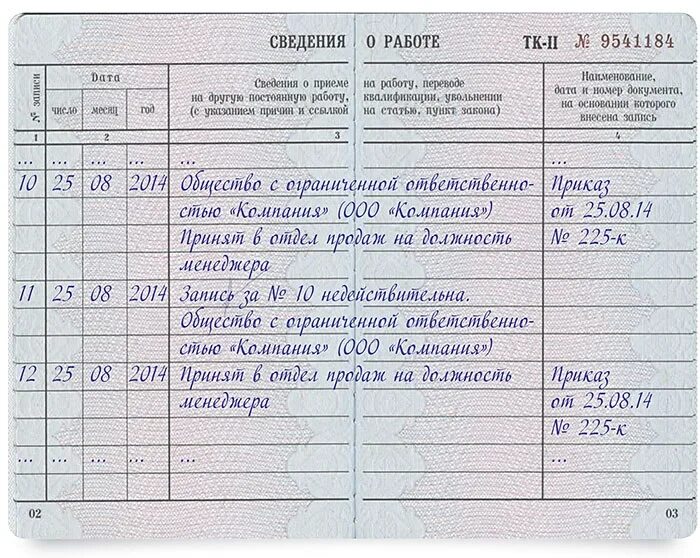 СВЕДЕНИЯ О РАБОТЕ ТК-II № 9541184
№ записи
Дата
число месяц год
Сведения о приеме на работу, переводе
на другую постоянную работу, квалификации, увольнении
(с указанием причин и ссылкой на статью, пункт закона)
Наименование,
дата и номер документа,
на основании которого
внесена запись
1 2 3 4
... ... ... ... ... ...
10 25 08 2014 Общество с ограниченной ответственно- Приказ
стью «Компания» (ООО «Компания») от 25.08.14
Принят в отдел продаж на должность № 225-к
менеджера
11 25 08 2014 Запись за № 10 недействительна.
Общество с ограниченной ответственно-
стью «Компания» (ООО «Компания»)
12 25 08 2014 Принят в отдел продаж на должность Приказ
менеджера от 25.08.14
№ 225-к
... ... ... ... ... ...
02 03